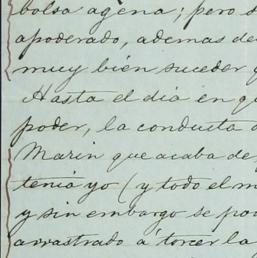 bolsa agena; pero s
apoderado, ademas de
muy bien suceder y
Hasta el dia en qu
poder, la conducta d
Marin que acaba de
tenia yo (y todo el m
y sin embargo se po
arrastrado á torcer la